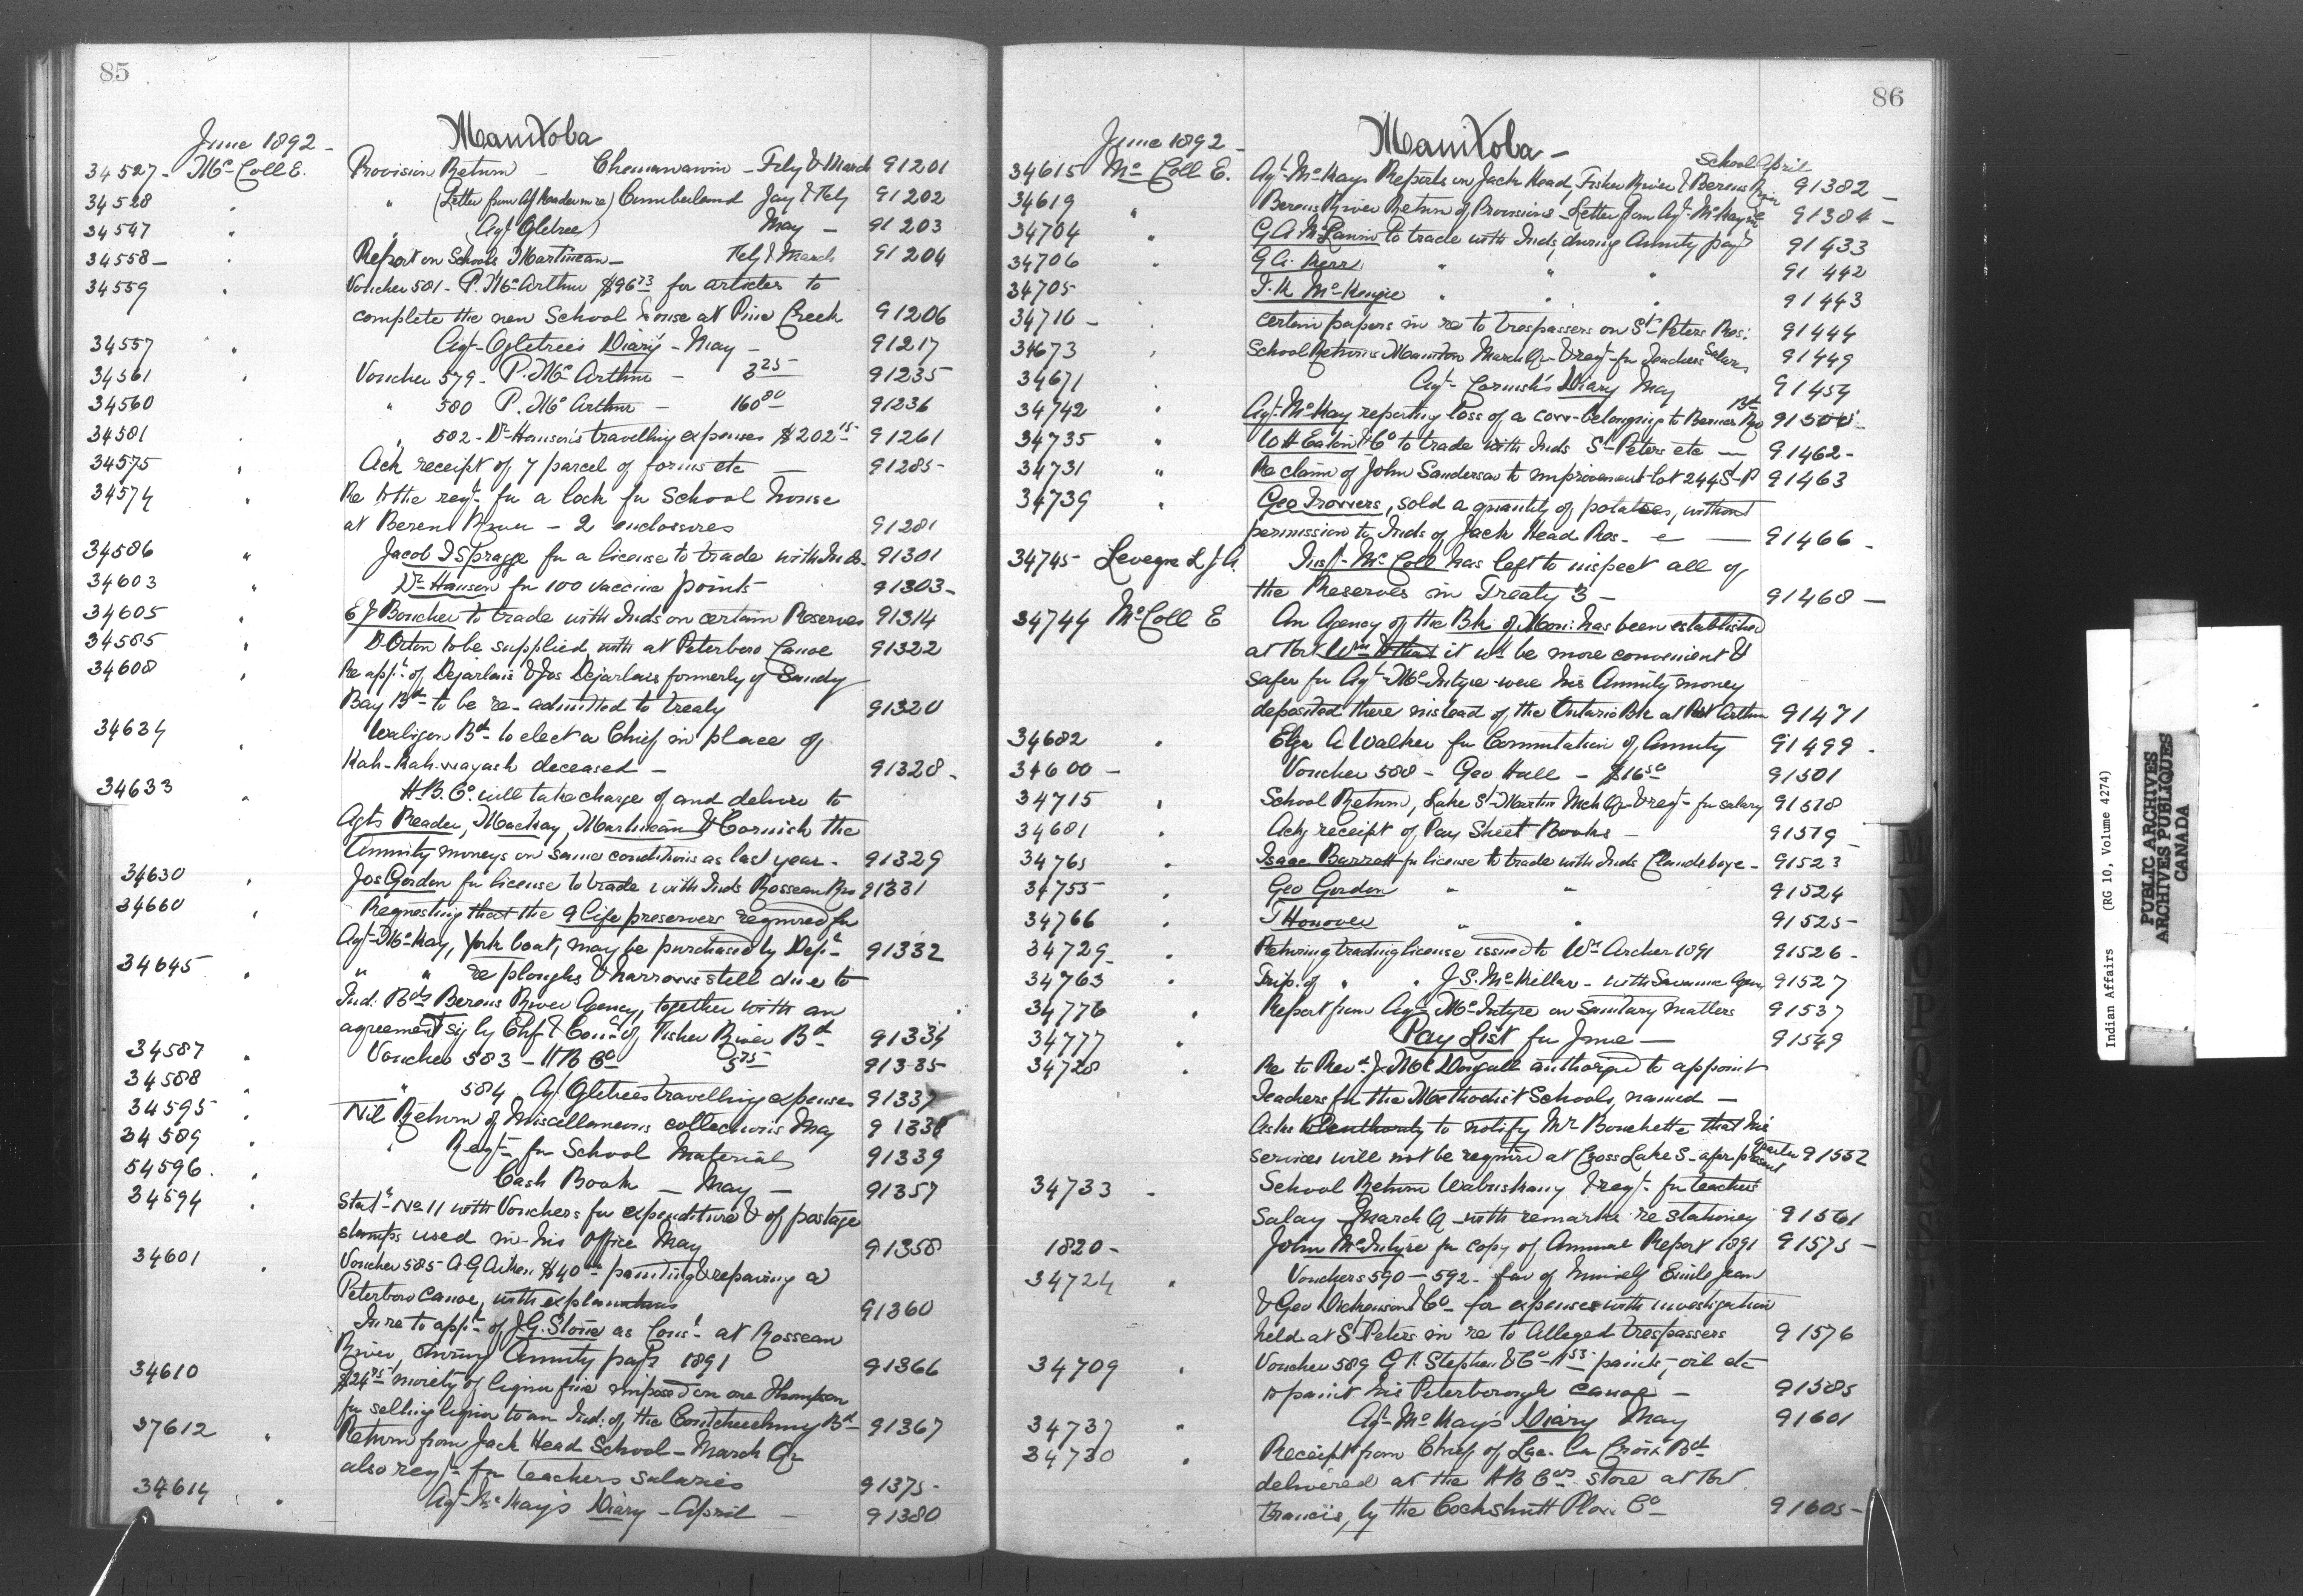 85
June 1892 -
Manitoba
34527 - McColl E. Provision Return - Chemawawin - Feby & March 91201
34528 " " (Letter from Agt Reader in re) Cumberland Jay & Feby 91202
34547 " " (Agt Ogletree) May - 91203
34558 - " Report on Schools Martineau - Feby & March 91204
34559 " Voucher 581 - P. McArthur $96 73 for articles to
complete the new School house at Pine Creek 91206
34557 " Agt Ogletree's Diary - May - 91217
34561 " Voucher 579 - P. McArthur - 3 25 91235
34560 " 580 P. McArthur - 160 80 91236
34581 " 582 - Dr Hanson's travelling expenses $202 15 91261
34575 " Ack receipt of 7 parcel of forms etc - 91285 -
34574 " Re to the reqt for a lock for School house
at Berens River - 2 enclosures 91281
34586 " Jacob I Spragge for a license to trade with Inds - 91301
34603 " Dr Hanson for 100 vaccine points 91303 -
34605 " E J Boucher to trade with Inds on certain Reserves 91314
34585 " D Orton to be supplied with at Peterboro Canoe 91322
34608 " Re appt of Dejarlais & Jos Dejarlais formerly of Sandy
Bay Bd to be re-admitted to treaty 91320
34634 " Waligon Bd to elect a Chief in place of
Kah-Kah-wayash deceased - 91328 -
34633 " H.B. Co. will take charge of and deliver to
Agts Reader, Mackay, Martineau & Cornish the
Annuity moneys on same conditions as last year - 91329
34630 " Jos Gordon for license to trade with Inds Rosseau Riv 91331
34660 " Requesting that the 9 life preservers required for
Agt McKay, York boat, may be purchased by Dept 91332
34645 " " " re ploughs & harrows still due to
Ind: Bds Berens River Agency, together with an
agreement sig by Chf & Counc of Fisher River Bd 91334
34587 " Voucher 583 - H B Co 5 75 91335
34588 " 584 Agt Ogletrees travelling expenses 91337
34595 " Nil Return of Miscellaneous collections May 91338
34589 " Reqt for School Material 91339
54596 . " Cash Book - May - 91357
34594 " Statt No 11 with Vouchers for expenditure & of postage
stamps used in his Office May 91358
34601 " Voucher 585 A G Aitken $40 painting & repairing a
Peterboro Canoe, with explanations 91360
In re to appt of J.G. Stone as Const at Rosseau
River during Annuity payts 1891 91366
34610 $24 75 moiety of liquor fine imposed on one Thompson
for selling liquor to an Ind: of the Bd 91367
37612 " Return from Jack Head School - March Qr
also reqt for teachers salaries 91375 -
34614 " Agt McKay's Diary - April - 91380
86
June 1892 -
Manitoba -
34615 McColl E. Agt McKays Reports on Jack Head, Fisher River & Berens River School April 91382 -
34619 " Berens River Return of Provisions - Letter from Agt McKay in re 91384 -
34704 " G A McLaurin to trade with Inds, during Annuity payt 91433
34706 " G A. Kerr " " " 91442
34705 " J. K McKenzie " " " 91443
34710 - " Certain papers in re to trespassers on St Peters Res: 91444
34673 " School Returns Manitou March Qr & reqt for Teachers Salary 91449
34671 " Agt Cornish's Diary May 91454
34742 " Agt McKay reporting loss of a cow belonging to Berens Riv Bd
34735 " W H Eaton & Co to trade with Inds St Peters etc - 91462 -
34731 " Re claim of John Sanderson to improvement Lot 244 St P 91463
34739 " Geo Frowers, sold a quantity of potatoes, without
permission to Inds of Jack Head Res. - 91466 -
34745 - Levegne L J A. Inspt McColl has left to inspect all of
the Reserves in Treaty 3 - 91468 -
34744 McColl E An Agency of the Bk of Mon: has been established
at Fort Wm & that it wd be more convenient &
safer for Agt McIntyre were his Annuity money
deposited there instead of the Ontario Bk at Port Arthur 91471
34682 " Elza A Walker for Commutation of Annuity 91499 .
34600 - Voucher 588 - Geo Hall - $16 50 91501
34715 " School Return, Lake St Martin Mch Qr & reqt for salary 91518
34681 " Ackg receipt of Pay Sheet Books - 91519
34765 " Isaac Barrett for license to trade with Inds Clandeboye - 91523
34755 " Geo Gordon " " 91524
34766 " T Honover " " 91525 -
34729 " Returning trading license issued to Wm Archer 1891 91526 -
34763 " Trip. of " " J.S. McKellar - with Savanne Agcy 91527
34776 " Report from Agt McIntyre on Sanitary Matters 91537
34777 " Pay List for June - 91549
34728 " Re to Revd J McDougall authorized to appoint
Teachers for the Methodist Schools, named -
Asks authority to notify Mr Bouchette that his
services will not be required at Cross Lake S - after present quarter 91552
34733 - School Return Wabuskang & reqt for teachers
Salay - March Q - with remarks re stationery 91561
1820 - John McIntyre for copy of Annual Report 1891 91575 -
34724 " Vouchers 590 - 592 - fav of himself Emile Jean
& Geo Dickenson & Co - for expenses with investigation
held at St Peters in re to Alleged trespassers 91576
34709 " Voucher 589 G F. Stephen & Co - 11 53 paints, oil etc
to paint his Peterborough canoe - 91585
34737 " Agt McKay's Diary May 91601
34730 " Receipt from Chief of Lac La Croix Bd
delivered at the H B Cos store at Fort
Francis, by the Cockshutt Plow Co 91605 -
Indian Affairs (RG 10, Volume 4274)
PUBLIC ARCHIVES
ARCHIVES PUBLIQUES
CANADA